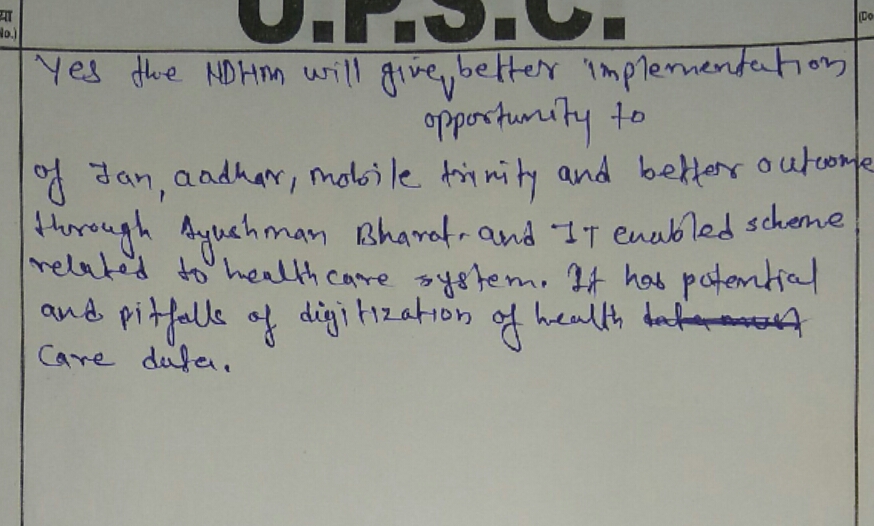 या
No.)
U.P.S.C.
(Do
Yes the NDHM will give better implementation
opportunity to
of Jan, aadhar, mobile trinity and better outcome
through Ayushman Bharat and IT enabled scheme
related to healthcare system. It has potential
and pitfalls of digitization of health
care data.